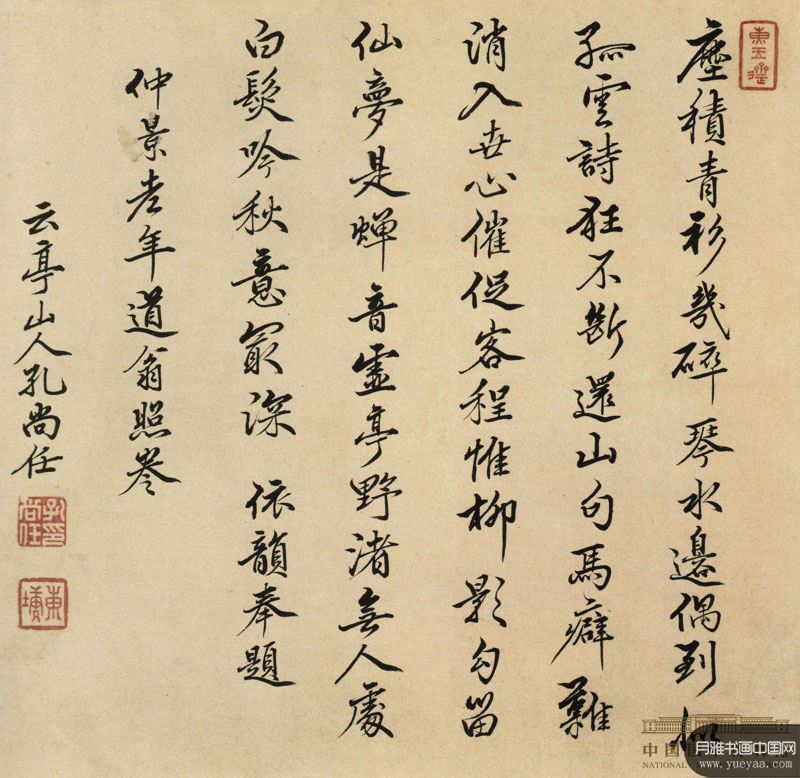 塵積青衫幾碎琴水邊偶到似
孤雲詩狂不斷還山句馬癖難
消入世心催促客程惟柳影勾留
仙夢是蟬音虛亭野渚無人處
白髮吟秋意最深 依韻奉題
仲景老年道翁照 
云亭山人孔尚任
孔尚任印
東塘
中国国
NATIONAL
月雅书画中国网
www.yueyaa.com